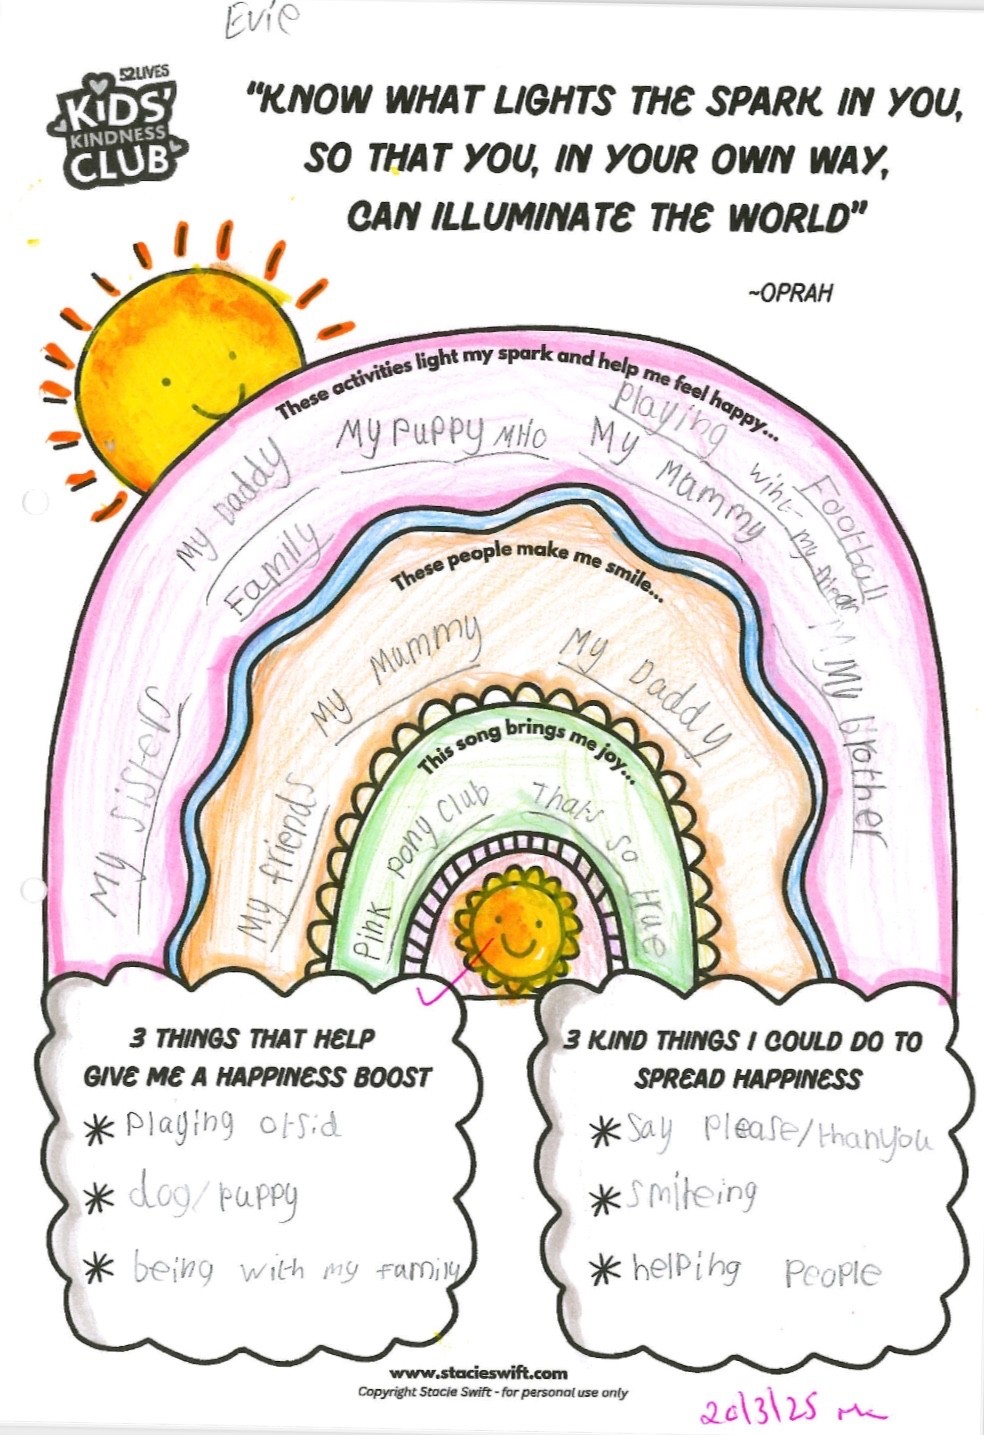 Evie
52 LIVES
KiDS'
KINDNESS
CLUB
"KNOW WHAT LIGHTS THE SPARK IN YOU,
SO THAT YOU, IN YOUR OWN WAY,
CAN ILLUMINATE THE WORLD"
~OPRAH
These activities light my spark and help me feel happy...
My sisters
My Daddy
Family
My Puppy MHO
My Mammy
Playing
with my
Football
My brother
These people make me smile...
My friends
My Mummy
My Daddy
This song brings me joy...
Pink pony Club
That's So true
3 THINGS THAT HELP
GIVE ME A HAPPINESS BOOST
* Playing otsid
* dog/puppy
* being with my family
3 KIND THINGS I COULD DO TO
SPREAD HAPPINESS
* Say please/thanyou
* Smileing
* helping People
www.stacieswift.com
Copyright Stacie Swift - for personal use only
20/3/25